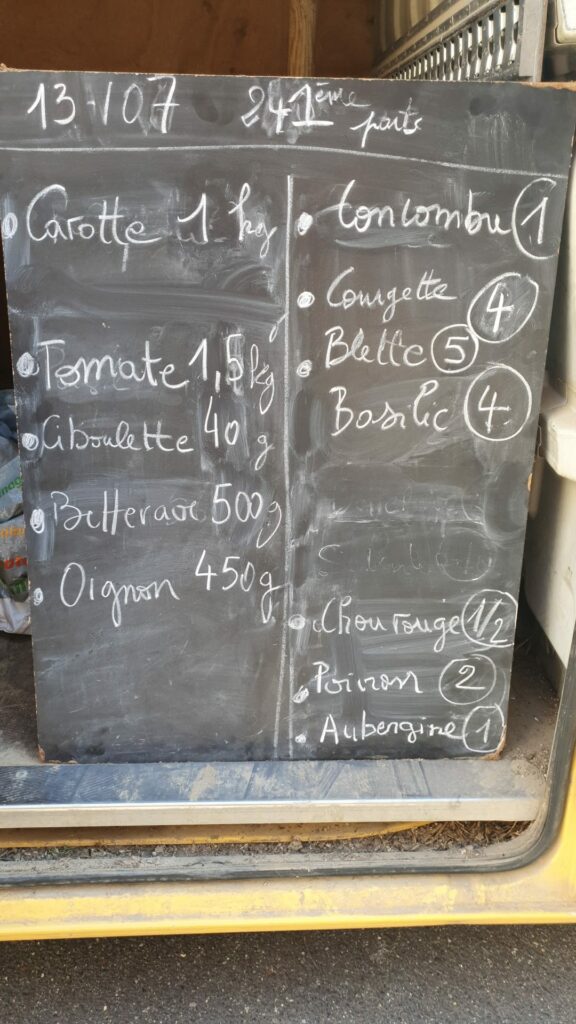 13/07 241ème parts
Carotte 1 kg
Tomate 1,5 kg
Ciboulette 40 g
Betterave 500g
Oignon 450g
Concombre 1
Courgette 4
Blette 5
Basilic 4
Chou rouge 1/2
Poivron 2
Aubergine 1